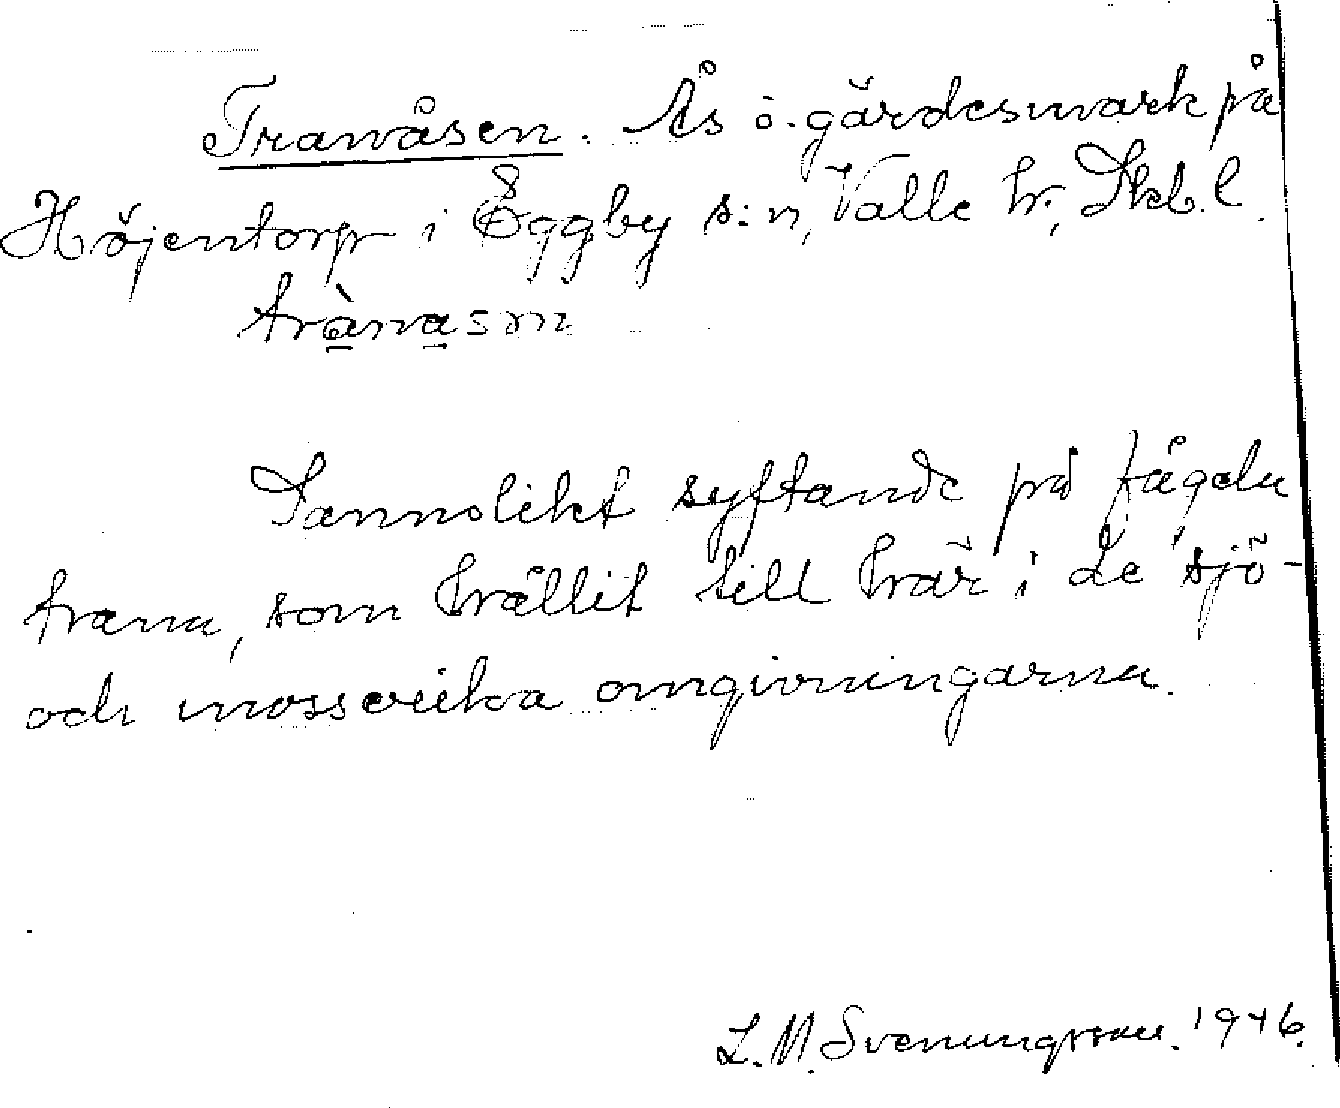 Tranåsen. Ås ö. gärdesmark på
Höjentorp i Eggby s:n, Valle hr, Skb. l.
trànasn
Sannolikt syftande på fågeln
trana, som hållit till här i de sjö-
och mossrika omgivningarna.
L. M. Svenungsson. 1946.